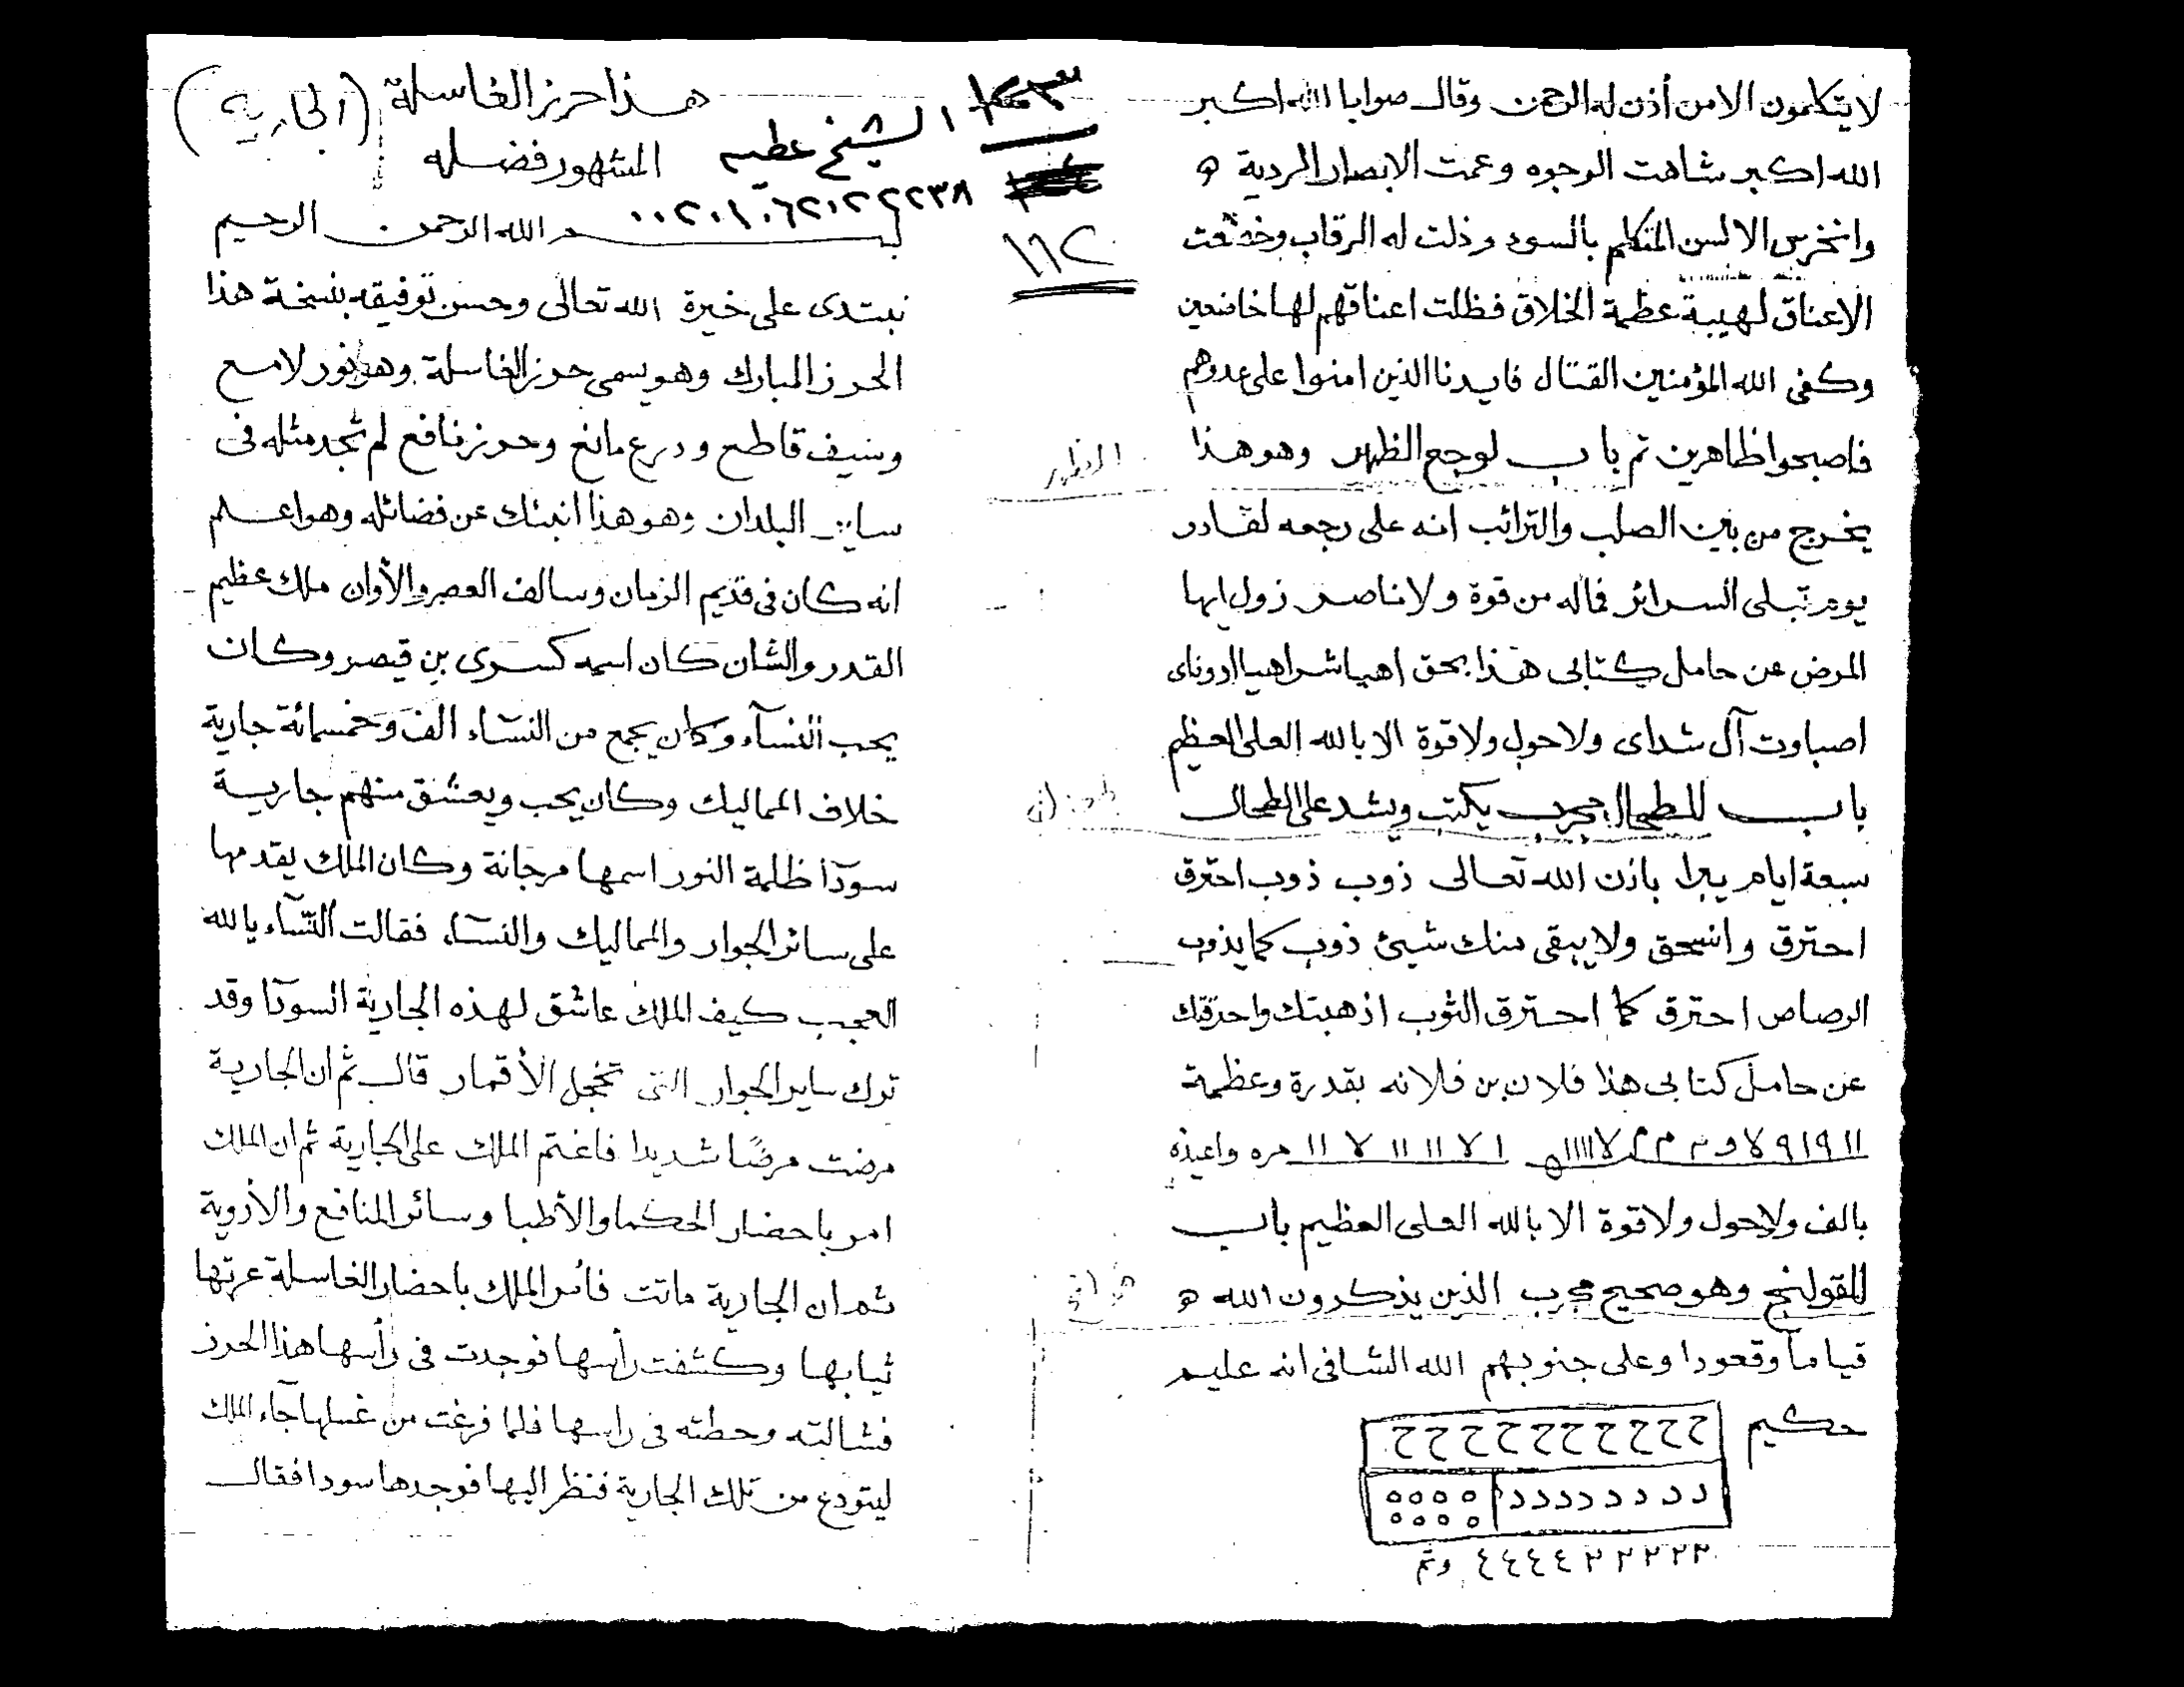 لا يتكلمون الا من أذن له الرحمن وقال صوابا الله اكبر
الله اكبر شاهت الوجوه وعمت الابصار الردية ه
وانخرس الالسن المتكلم بالسوء وذلت له الرقاب وخضعت
الاعناق لهيبة عظمة الخلاق فظلت اعناقهم لها خاضعين
وكفى الله المؤمنين القتال فايدنا الذين امنوا على عدوهم
فاصبحوا ظاهرين تم باب لوجع الظهر وهو هذا
يخرج من بين الصلب والترائب انه على رجعه لقادر
يوم تبلى السرائر فماله من قوة ولا ناصر زول ايها
المرض عن حامل كتابى هذا بحق اهيا شراهيا ادوناى
اصباوت آل شداى ولا حول ولا قوة الا بالله العلى العظيم
باب للطحال مجرب يكتب ويشد على الطحال
سبعة ايام يبرا باذن الله تعالى ذوب ذوب احترق
احترق وانسحق ولا يبقى منك شيئ ذوب كما يذوب
الرصاص احترق كما احترق الثوب اذهبتك واحرقتك
عن حامل كتابى هذا فلان بن فلانه بقدرة وعظمة
مره واعيذه
بالف ولا حول ولا قوة الا بالله العلى العظيم باب
للقولنج وهو صحيح مجرب الذين يذكرون الله ه
قياما وقعودا وعلى جنوبهم الله الشافى انه عليم
حكيم
ح ح ح ح ح ح ح ح ح ح
د د د د د د د د
٥ ٥ ٥ ٥
٥ ٥ ٥ ٥
٢ ٢ ٢ ٢ ٢ ٤ ٤ ٤ ٤ وتم
١١٢
هذا حرز الغاسلة (الجاريه)
الشيخ عطيه
المشهور فضله
٠٠٢٠١٠٦٢١٢٢٢٣٨
بسم الله الرحمن الرحيم
نبتدى على خيرة الله تعالى وحسن توفيقه بنسخة هذا
الحرز المبارك وهو يسمى حرز الغاسلة وهو نور لامع
وسيف قاطع ودرع مانع وحرز نافع لم تجد مثله فى
ساير البلدان وهو هذا انبئك عن فضائله وهو اعلم
انه كان فى قديم الزمان وسالف العصر والأوان ملك عظيم
القدر والشان كان اسمه كسرى بن قيصر وكان
يحب النسآء وكان يجمع من النسآء الف وخمسمائة جارية
خلاف المماليك وكان يحب ويعشق منهم جارية
سودآ ظلمة النور اسمها مرجانة وكان الملك يقدمها
على سائر الجوار والمماليك والنسآء فقالت النسآء يا لله
العجب كيف الملك عاشق لهذه الجارية السودآ وقد
ترك ساير الجوار التى تخجل الأقمار قال ثم ان الجارية
مرضت مرضا شديدا فاغتم الملك على الجارية ثم ان الملك
امر باحضار الحكما والأطبا وسائر المنافع والأدوية
ثم ان الجارية ماتت فأمر الملك باحضار الغاسلة عرتها
ثيابها وكشفت رأسها فوجدت فى رأسها هذا الحرز
فشالته وحطته فى راسها فلما فرغت من غسلها جآء الملك
ليتودع من تلك الجارية فنظر اليها فوجدها سودا فقال